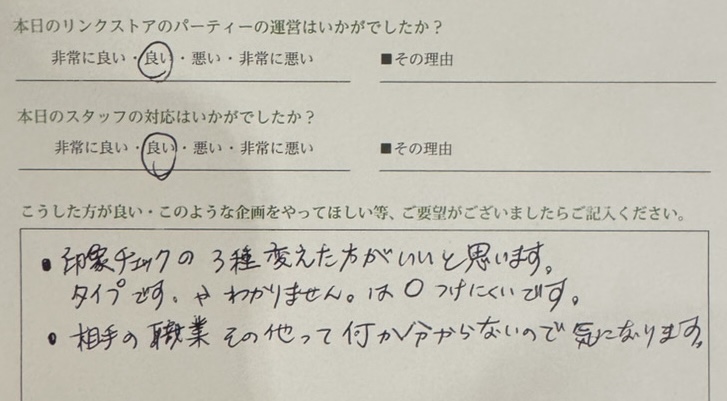 本日のリンクストアのパーティーの運営はいかがでしたか？
非常に良い・良い・悪い・非常に悪い ■その理由
本日のスタッフの対応はいかがでしたか？
非常に良い・良い・悪い・非常に悪い ■その理由
こうした方が良い・このような企画をやってほしい等、ご要望がございましたらご記入ください。
• 印象チェックの3種変えた方がいいと思います。
タイプです。や わかりません。は〇つけにくいです。
• 相手の職業 その他って何か分からないので気になります。